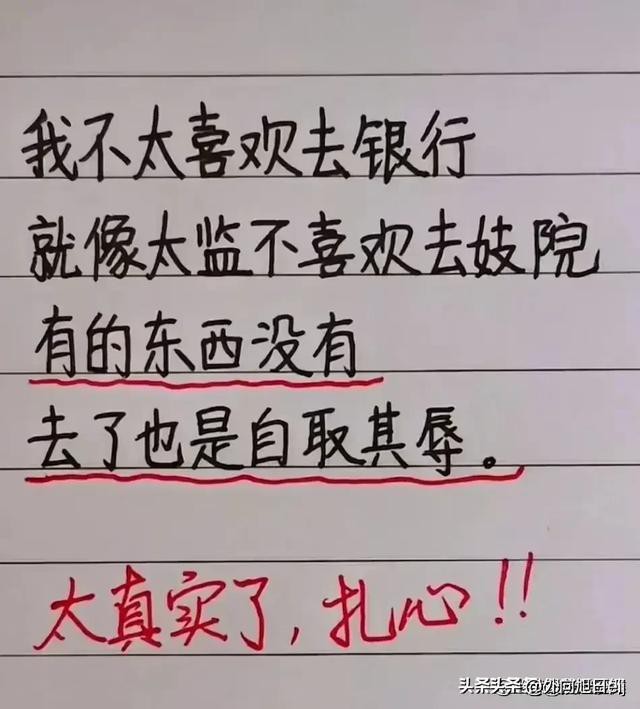 我不太喜欢去银行
就像太监不喜欢去妓院
有的东西没有
去了也是自取其辱。
太真实了,扎心!!
头条头条 @外向旭日圳